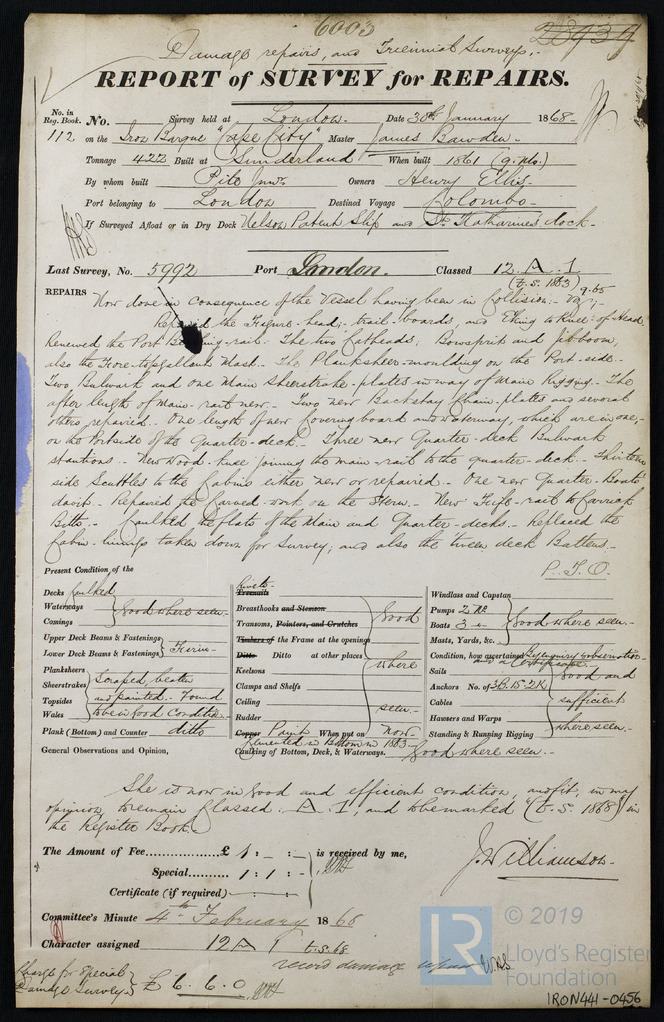 6003
28939
Damage repairs, and Triennial Survey.
REPORT of SURVEY for REPAIRS.
No. in Reg. Book. No. Survey held at London Date 30th January 1868
112 on the Iron Barque "Cape City" Master James Bawden
Tonnage 422 Built at Sunderland When built 1861 (9. mo.)
By whom built Pile Junr. Owners Henry Ellis
Port belonging to London Destined Voyage Colombo
If Surveyed Afloat or in Dry Dock Nelson, Patent Slip and St. Katharine's dock.
Last Survey, No. 5992 Port London. Classed 12. A. 1
(t.s. 1863) 9.65
REPAIRS Now done in consequence of the Vessel having been in Collision; Viz;
Repaired the Figure-head; trail-boards, and Eking to Knee of Head
Renewed the Port rail. The two Catheads; Bowsprit and Jibboom,
also the Fore-topgallant Mast. The Planksheer-moulding on the Port-side.
Two Bulwark and one Main Sheerstrake-plates in way of Main Rigging. The
after length of Main-rail new. Two new Backstay Chain-plates and several
others repaired. One length of new Covering board and Waterway, which are in one,
on the Port side of the Quarter-deck. Three new Quarter-deck Bulwark
stantions. New wood-knee joining the main-rail to the quarter-deck. Thirteen
side Scuttles to the Cabins either new or repaired. One new Quarter-Boats
davit. Repaired the Carved-work on the Stern. New Fife-rail to Carrick
Bitts. Caulked the flats of the Main and Quarter-decks. Replaced the
Cabin-linings taken down for Survey; and also the 'tween deck Battens.
P.T.O.
Present Condition of the
Decks Caulked
Waterways
Comings
Good where seen
Upper Deck Beams & Fastenings
Lower Deck Beams & Fastenings
Firm
Planksheers
Sheerstrakes
Topsides
Wales
Scraped, beaten
and painted. Found
to be in good Condition
Plank (Bottom) and Counter ditto
General Observations and Opinion,
rivets
Treenails
Breasthooks and Stemson
Transoms, Pointers, and Crutches
Timbers of the Frame at the openings
Ditto Ditto at other places
Keelsons
Clamps and Shelfs
Ceiling
Rudder
Good
where
seen
Copper Paint When put on now
Cemented in Bottom in 1863
Caulking of Bottom, Deck, & Waterways. Good where seen.
Windlass and Capstan
Pumps 2 No
Boats 3
Masts, Yards, &c.
Good where seen
Condition, how ascertained By enquiry & observation
Sails
Anchors No. of 3B. 1S. 2K
Cables
Hawsers and Warps
Standing & Running Rigging
Good and
sufficient
where seen
She is now in Good and efficient condition, and fit, in my
opinion, to remain Classed A.1, and to be marked "(t.s. 1868)" in
the Register Book.
The Amount of Fee £ 1 : - : - is received by me,
Special 1 : 1 : -
Certificate (if required) - : - : -
J. Williamson
Committee's Minute 4th February 1868
Character assigned 12 A 1 t.s. 68
record damage repairs
Charge for Special Damage Survey £ 6. 6. 0
LR
© 2019
Lloyd's Register
Foundation
IRON441-0456